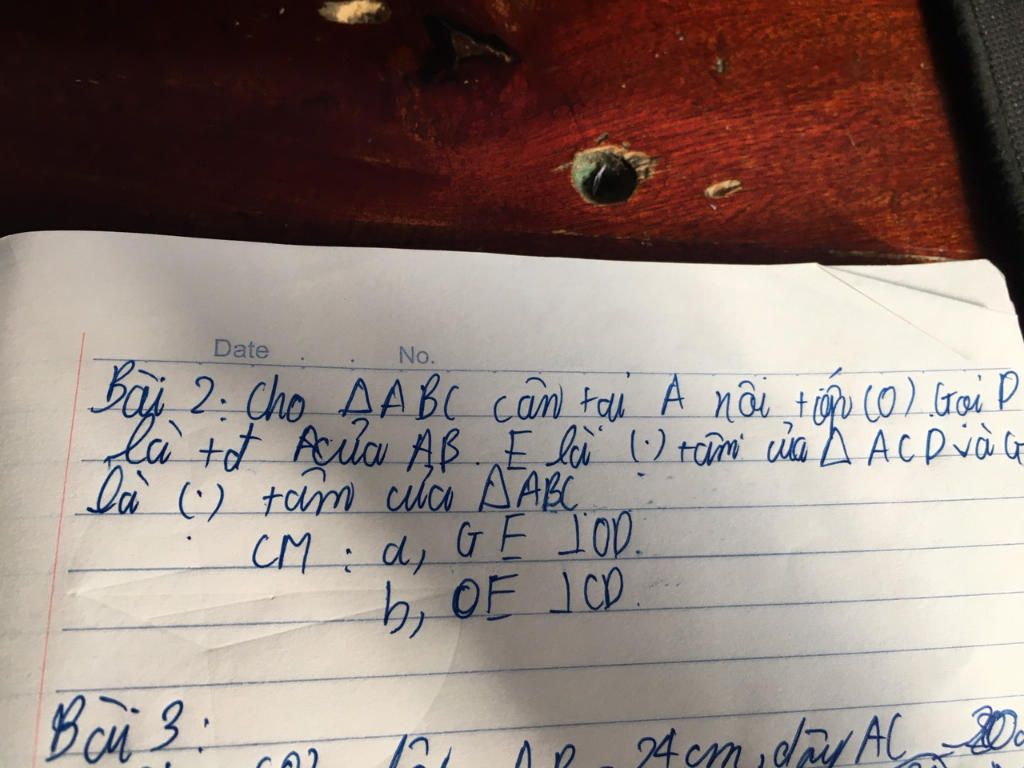 Date . . No.
Bài 2: Cho ΔABC cân tại A nội tiếp (O). Gọi D
là tđ của AB. E là (.) tâm của Δ ACD và G
là (.) tâm của ΔABC
CM : a, GE ⊥OD.
b, OE ⊥CD.
Bài 3:
dây AB = 24cm, dây AC 20